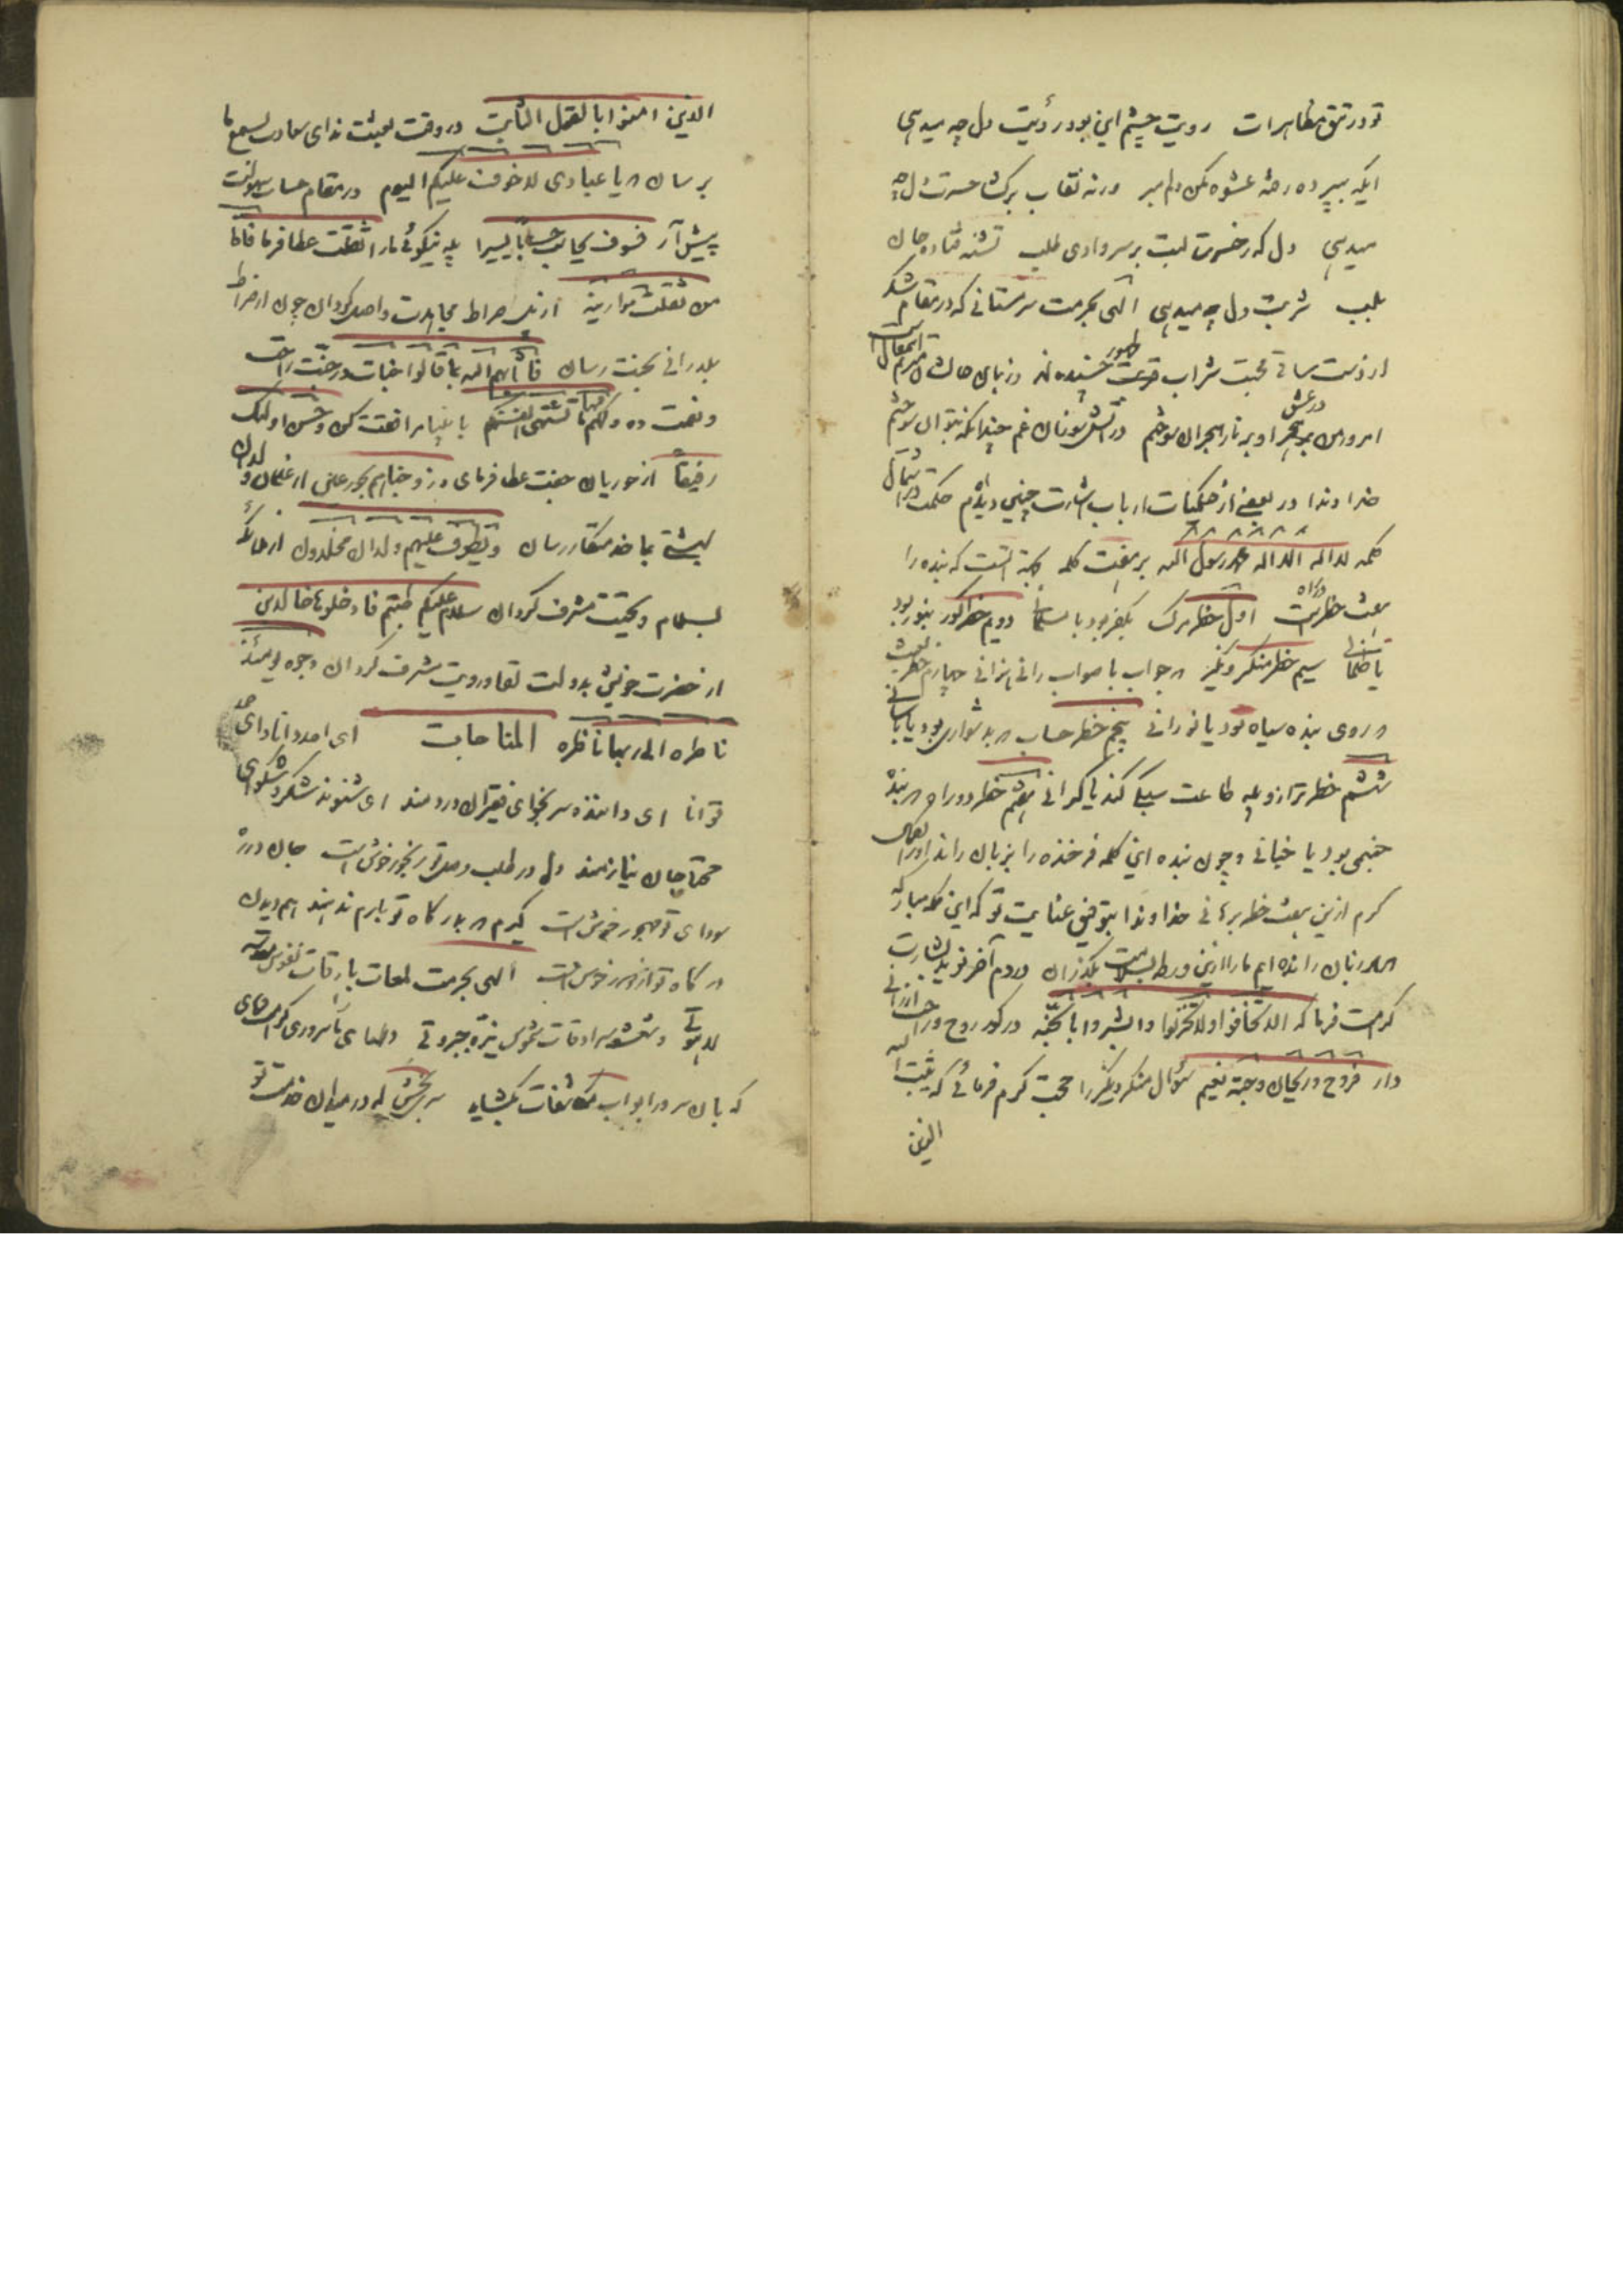 تو در تتق مظاهرات رویت چشم این بود رؤیت دل چه میدهی
ایکه بپرده رخت عشوه کن دلم ببر ورنه نقاب برکشا حسرت دل چه
میدهی دل که ز حسرت لبت بر سر وادی طلب تشنه فتاده جان
بلب شربت دل چه میدهی الهی بحرمت سرمستانی که در مقام شکر
از دست ساقی محبت شراب طهور چشیده اند و زبان حال شان مترنم
امروز در عشق او بر نار هجران سوختیم در آتش سوزان غم چندانکه بتوان سوختیم
خداوندا در بعضی از حکمیات ارباب اشارت چنین دیدیم حکمت در
کلمه لا اله الا الله محمد رسول الله بر هفت کلمه آنست که بنده را
هفت خطر در راه است اول خطر مرگ بکفر بود یا مسلمانی دویم خطر گور بنور بود
یا ظلمانی سیم خطر منکر و نکیر در جواب با صواب رانی چهارم خطر بعث
در روی بنده سیاه بود یا نورانی پنجم خطر حساب در بدشواری بود یا بآسانی
ششم خطر ترازو پله طاعت سبکی کند یا گرانی هفتم خطر دوراه بنده
جهنمی بود یا جنانی و چون بنده این کلمه فرخنده را بزبان راند او را بکمال
کرم ازین هفت خطر برهانی خداوندا بتوفیق عنایت تو که این کلمه مبارکه
بر زبان رانده ایم ما را ازین ورطه بسلامت بگذران در دم آخر نوید بشارت
کرامت فرما که الا تخافوا ولا تحزنوا وابشروا بالجنّة در گور روح و راحت ارزانی
دار فروح وریحان وجنة نعیم سؤال منکر و نکیر را حجت کرم فرمائی که یثبت الله
الذین
الذین امنوا بالقول الثابت در وقت بعثت ندای سعادت بسمع ما
برسان که یا عبادی لا خوف علیکم الیوم در مقام حساب سهولت
پیش آر فسوف یحاسب حسابا یسیرا پله نیکوئی ما را ثقلت عطا فرما فاما
من ثقلت موازینه از پل صراط واصل گردان چون از صراط
بگذرانی بجنت رسان فأثابهم الله بما قالوا جنات در جنت راحت
و نعمت ده ولکم فیها ما تشتهی انفسکم با انبیا مرافقت کن وحسن اولئک
رفیقاً از حوریان جفت عطا فرمای وزوجناهم بحور عین از غلمان و ولدان
بهشتی بما خدمتکار رسان ویطوف علیهم ولدان مخلدون از ملائکه
بسلام و تحیت مشرف گردان سلام علیکم طبتم فادخلوها خالدین
از حضرت خویش بدولت لقا و رویت مشرف گردان وجوه یومئذ
ناضره الی ربها ناظره المناجات ای احد دانا و ای صمد
توانا ای داننده سر فقیران دردمند ای شنونده شکر و شکوای
محتاجان نیازمند دل در طلب وصل تو رنجور خوش است جان در
سودای تو مهجور خوش است گیرم که بدرگاه تو بارم ندهند هم دیدن
درگاه تو از دور خوش است الهی بحرمت لمعات بارقات نفوس مقدسه
لاهوتی و شعشعه سرادقات شموس نیّره جبروتی و
که بآن سرور ابواب مکاشفات بگشاید بخش که در میدان خدمت تو